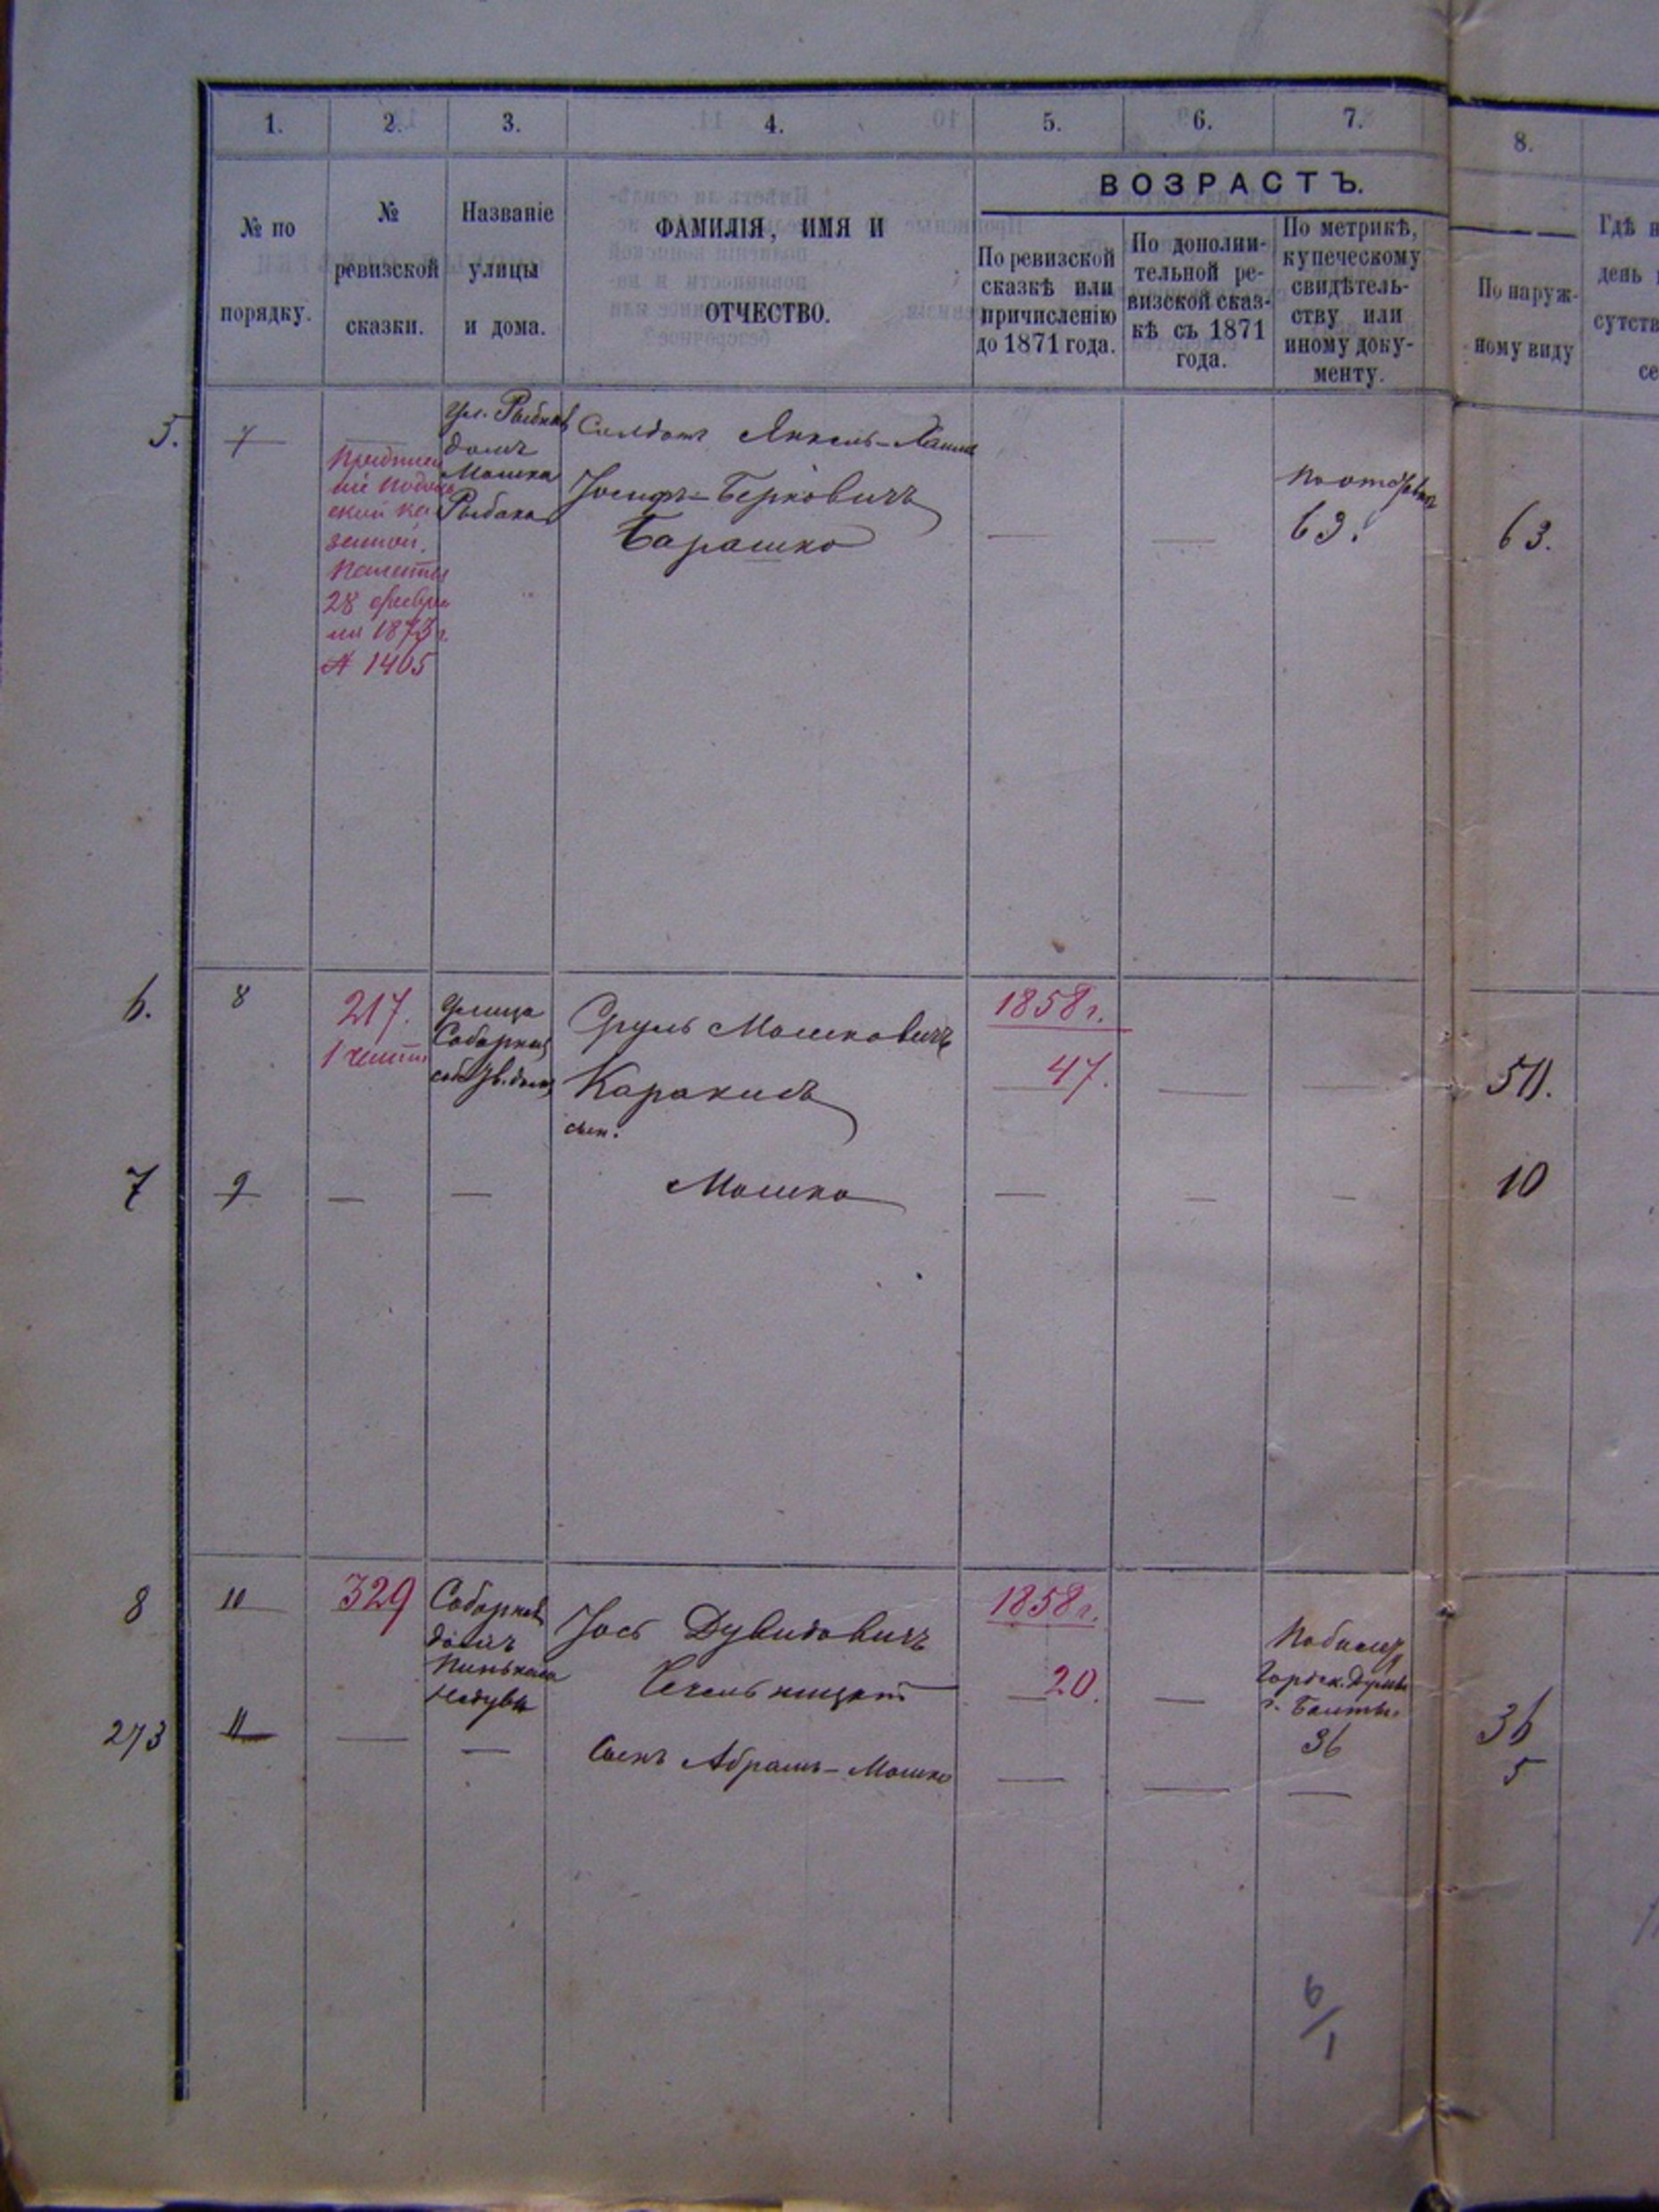 1. 2. 3. 4. 5. 6. 7. 8.
ВОЗРАСТЪ.
№ по
порядку.
№
ревизской
сказки.
Названіе
улицы
и дома.
ФАМИЛІЯ, ИМЯ И
ОТЧЕСТВО.
По ревизской
сказкѣ или
причисленію
до 1871 года.
По дополни-
тельной ре-
визской сказ-
кѣ съ 1871
года.
По метрикѣ,
купеческому
свидѣтель-
ству или
иному доку-
менту.
По наруж-
ному виду
Гдѣ н
день
сутств
се
5.
7
28 февра
ля 1873 г.
№ 1405
Ул. Рыбная
домъ
Мошка
Рыбака
Солдатъ Янкель-
Іосифъ-Берковичъ
Барашко
63.
63.
6.
8
217.
1 части
Улица
Соборная
Сруль Мошковичъ
Каракисъ
сын.
1858 г.
47.
50.
7
9
Мошко
10
8
10
329
Соборная
домъ
Іось Дувидовичъ
Чечельницкій
1858 г.
20.
По билету
Городск. Думы
г. Балты.
36
36
273
11
Сынъ Абрамъ-Мошко
5
6/1